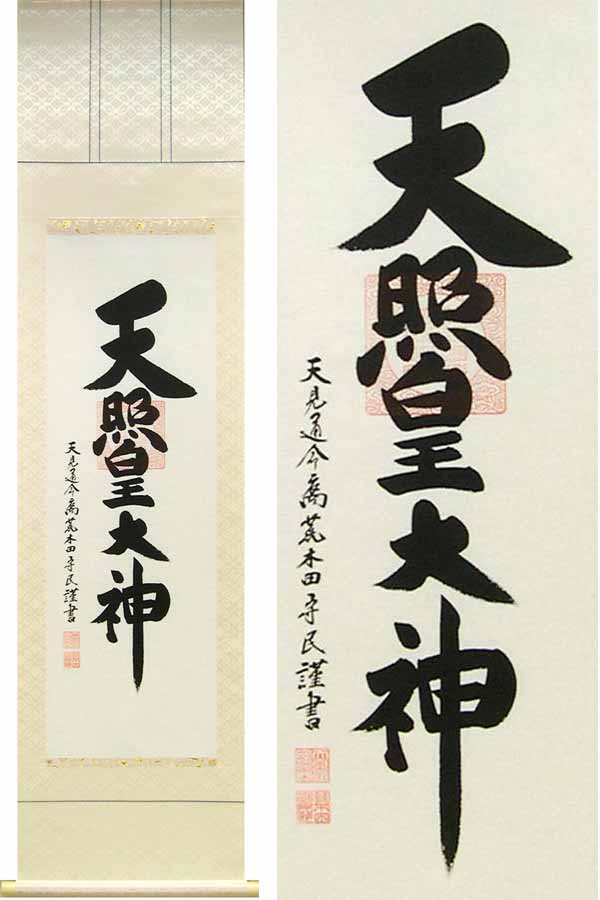 天照皇大神
天見通命裔荒木田守民謹書
天照皇大神
天見通命裔荒木田守民謹書